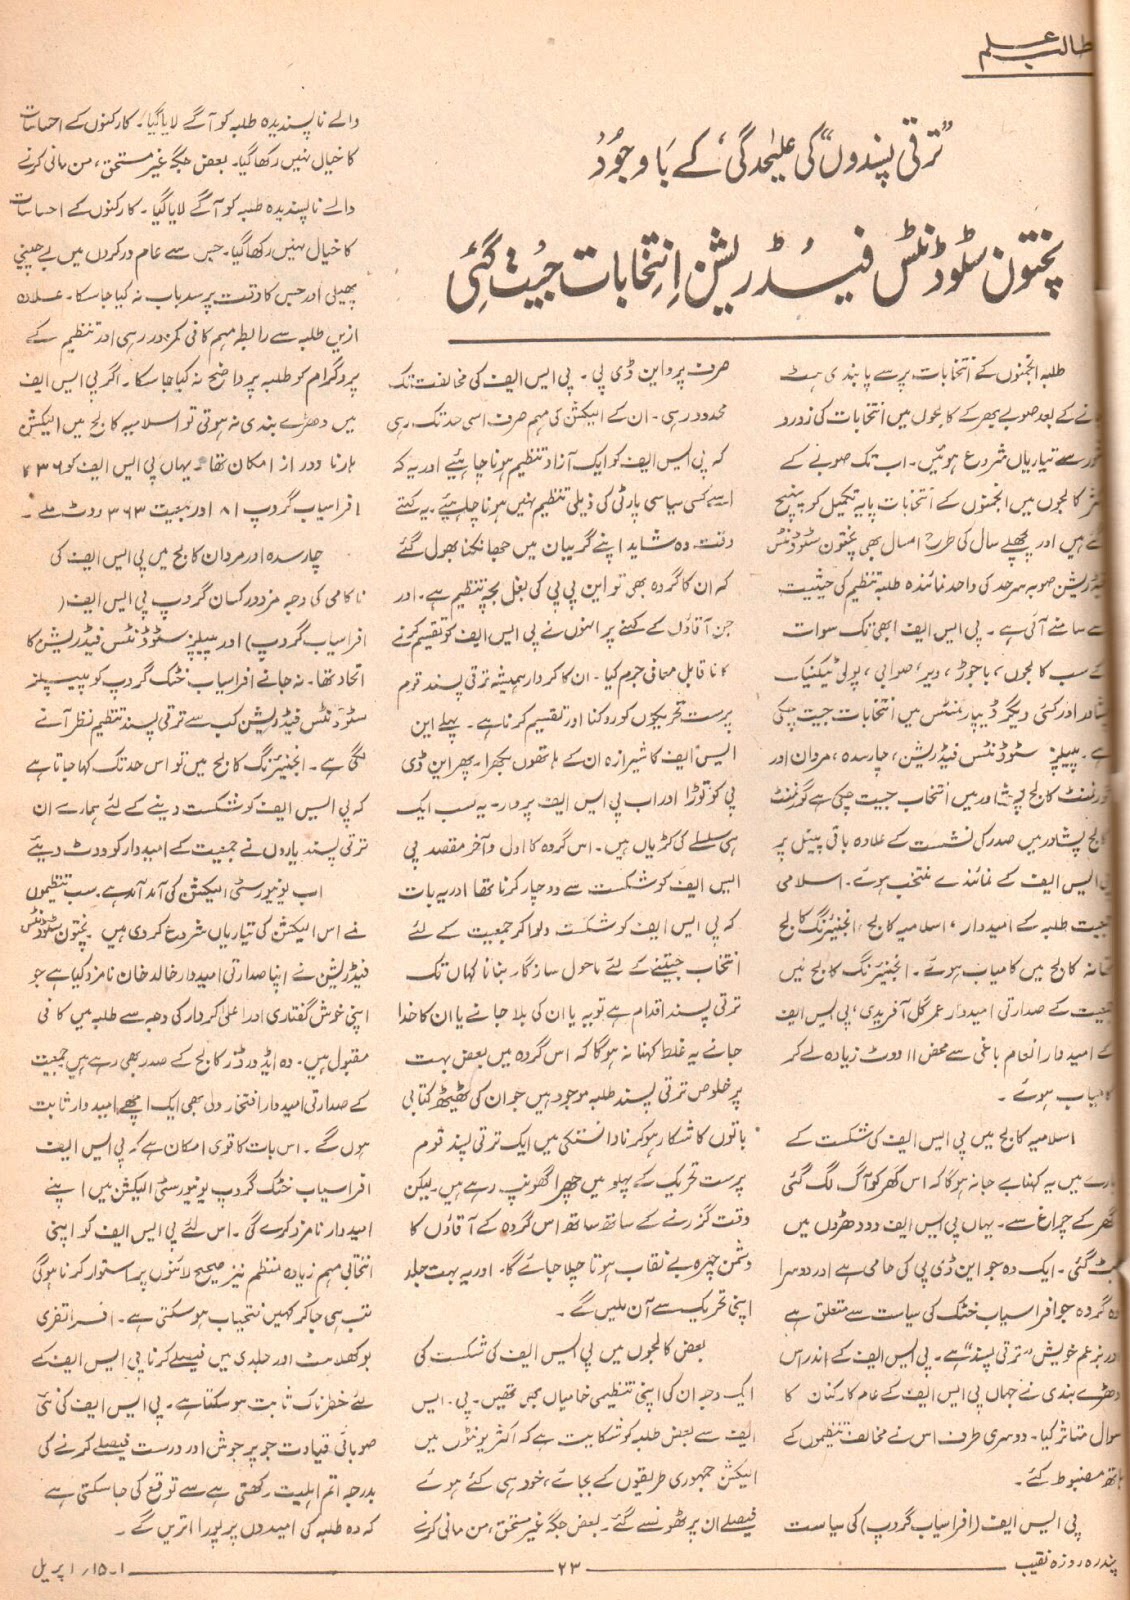 طالب علم
”ترقی پسندوں“ کی علیٰحدگی، کے باوجود
پختون سٹوڈنٹس فیڈریشن انتخابات جیت گئی
طلبہ انجمنوں کے انتخابات پر سے پابندی ہٹ
جانے کے بعد صوبے بھر کے کالجوں میں انتخابات کی زور و
شور سے تیاریاں شروع ہوئیں۔ اب تک صوبے کے
اکثر کالجوں میں انجمنوں کے انتخابات پایہ تکمیل کو پہنچ
گئے ہیں اور پچھلے سال کی طرح امسال بھی پختون سٹوڈنٹس
فیڈریشن صوبہ سرحد کی واحد نمائندہ طلبہ تنظیم کی حیثیت
سے سامنے آئی ہے۔ پی ایس ایف ابھی تک سوات
کے سب کالجوں، باجوڑ، دیر، صوابی، پولی ٹیکنیک
پشاور اور کئی دیگر ڈیپارٹمنٹس میں انتخابات جیت چکی
ہے۔ پیپلز سٹوڈنٹس فیڈریشن، چارسدہ، مردان اور
گورنمنٹ کالج پشاور میں انتخاب جیت چکی ہے گورنمنٹ
کالج پشاور میں صدر کی نشست کے علاوہ باقی پینل پر
پی ایس ایف کے نمائندے منتخب ہوئے۔ اسلامی
جمعیت طلبہ کے امیدوار، اسلامیہ کالج، انجنیئرنگ کالج
تھانہ کالج میں کامیاب ہوئے۔ انجنیئرنگ کالج میں
جمعیت کے صدارتی امیدوار عمر گل آفریدی، پی ایس ایف
کے امیدوار انعام باغی سے محض ۱۱ ووٹ زیادہ لے کر
کامیاب ہوئے۔
اسلامیہ کالج میں پی ایس ایف کی شکست کے
بارے میں یہ کہنا بے جا نہ ہوگا کہ اس گھر کو آگ لگ گئی
گھر کے چراغ سے۔ یہاں پی ایس ایف دو دھڑوں میں
بٹ گئی۔ ایک وہ جو این ڈی پی کی حامی ہے اور دوسرا
وہ گروہ جو افراسیاب خٹک کی سیاست سے متعلق ہے
اور بزعم خویش ”ترقی پسند“ ہے۔ پی ایس ایف کے اندر اس
دھڑے بندی نے جہاں پی ایس ایف کے عام کارکنان کا
سوال متاثر کیا۔ دوسری طرف اس نے مخالف تنظیموں کے
ہاتھ مضبوط کئے۔
پی ایس ایف (افراسیاب گروپ) کی سیاست
صرف پرو این ڈی پی۔ پی ایس ایف کی مخالفت تک
محدود رہی۔ ان کے الیکشن کی مہم صرف اسی حد تک رہی
کہ پی ایس ایف کو ایک آزاد تنظیم ہونا چاہیئے اور یہ کہ
اسے کسی سیاسی پارٹی کی ذیلی تنظیم نہیں ہونا چاہیئے۔ یہ کہتے
وقت وہ شاید اپنے گریبان میں جھانکنا بھول گئے
کہ ان کا گروہ بھی تو این پی پی کی بغل بچہ تنظیم ہے۔ اور
جن آقاؤں کے کہنے پر انہوں نے پی ایس ایف کو تقسیم کرنے
کا ناقابل معافی جرم کیا۔ ان کا کردار ہمیشہ ترقی پسند قوم
پرست تحریکوں کو روکنا اور تقسیم کرنا ہے۔ پہلے این
ایس ایف کا شیرازہ ان کے ہاتھوں بکھرا۔ پھر این ڈی
پی کو توڑا اور اب پی ایس ایف پر وار۔ یہ سب ایک
ہی سلسلے کی کڑیاں ہیں۔ اس گروہ کا اول و آخر مقصد پی
ایس ایف کو شکست سے دوچار کرنا تھا اور یہ بات
کہ پی ایس ایف کو شکست دلوا کر جمعیت کے لئے
انتخاب جیتنے کے لئے ماحول سازگار بنانا کہاں تک
ترقی پسند اقدام ہے تو یہ یا ان کی بلا جانے یا ان کا خدا
جانے یہ غلط کہنا نہ ہوگا کہ اس گروہ میں بعض بہت
پر خلوص ترقی پسند طلبہ موجود ہیں جو ان کی ٹھیٹھ کتابی
باتوں کا شکار ہو کر نادانستگی میں ایک ترقی پسند قوم
پرست تحریک کے پہلو میں چھرا گھونپ رہے ہیں۔ لیکن
وقت گزرنے کے ساتھ ساتھ اس گروہ کے آقاؤں کا
دشمن چہرہ بے نقاب ہوتا چلا جائے گا۔ اور یہ بہت جلد
اپنی تحریک سے آن ملیں گے۔
بعض کالجوں میں پی ایس ایف کی شکست کی
ایک وجہ ان کی اپنی تنظیمی خامیاں بھی تھیں۔ پی۔ ایس
ایف سے بعض طلبہ کو شکایت ہے کہ اکثر یونٹوں میں
الیکشن جمہوری طریقوں کے بجائے، خود ہی کئے ہوئے
فیصلے ان پر ٹھونسے گئے۔ بعض جگہ غیر مستحق، من مانی کرنے
والے ناپسندیدہ طلبہ کو آگے لایا گیا۔ کارکنوں کے احساسات
کا خیال نہیں رکھا گیا۔ بعض جگہ غیر مستحق، من مانی کرنے
والے ناپسندیدہ طلبہ کو آگے لایا گیا۔ کارکنوں کے احساسات
کا خیال نہیں رکھا گیا۔ جس سے عام ورکروں میں بے چینی
پھیلی اور جس کا وقت پر سدباب نہ کیا جا سکا۔ علاوہ
ازیں طلبہ سے رابطہ مہم کافی کمزور رہی اور تنظیم کے
پروگرام کو طلبہ پر واضح نہ کیا جا سکا۔ اگر پی ایس ایف
میں دھڑے بندی نہ ہوتی تو اسلامیہ کالج میں الیکشن
ہارنا دور از امکان تھا۔ یہاں پی ایس ایف کو ۳۳۶
افراسیاب گروپ ۸۱ اور جمعیت ۳۶۳ ووٹ ملے۔
چارسدہ اور مردان کالج میں پی ایس ایف کی
ناکامی کی وجہ مزدور کسان گروپ پی ایس ایف (
افراسیاب گروپ) اور پیپلز سٹوڈنٹس فیڈریشن کا
اتحاد تھا۔ نہ جانے افراسیاب خٹک گروپ کو پیپلز
سٹوڈنٹس فیڈریشن کب سے ترقی پسند تنظیم نظر آنے
لگی ہے۔ انجنیئرنگ کالج میں تو اس حد تک کہا جاتا ہے
کہ پی ایس ایف کو شکست دینے کے لئے ہمارے ان
ترقی پسند یاروں نے جمعیت کے امیدوار کو ووٹ دیئے
اب یونیورسٹی الیکشن کی آمد آمد ہے۔ سب تنظیموں
نے اس الیکشن کی تیاریاں شروع کر دی ہیں۔ پختون سٹوڈنٹس
فیڈریشن نے اپنا صدارتی امیدوار خالد خان نامزد کیا ہے جو
اپنی خوش گفتاری اور اعلیٰ کردار کی وجہ سے طلبہ میں کافی
مقبول ہیں۔ وہ ایڈورڈز کالج کے صدر بھی رہے ہیں جمعیت
کے صدارتی امیدوار افتخار ولی بھی ایک اچھے امیدوار ثابت
ہوں گے۔ اس بات کا قوی امکان ہے کہ پی ایس ایف
افراسیاب خٹک گروپ یونیورسٹی الیکشن میں اپنے
امیدوار نامزد کرے گی۔ اس لئے پی ایس ایف کو اپنی
انتخابی مہم زیادہ منظم نیز صحیح لائنوں پر استوار کرنا ہوگی
تب ہی جا کر کہیں فتحیاب ہو سکتی ہے۔ افراتفری
بوکھلاہٹ اور جلدی میں فیصلے کرنا پی ایس ایف کے
لئے خطرناک ثابت ہو سکتا ہے۔ پی ایس ایف کی نئی
صوبائی قیادت جو پر جوش اور درست فیصلے کرنے کی
بدرجہ اتم اہلیت رکھتی ہے سے توقع کی جا سکتی ہے
کہ وہ طلبہ کی امیدوں پر پورا اتریں گے۔
پندرہ روزہ نقیب
۲۳
۱۔ ۱۵؍ اپریل